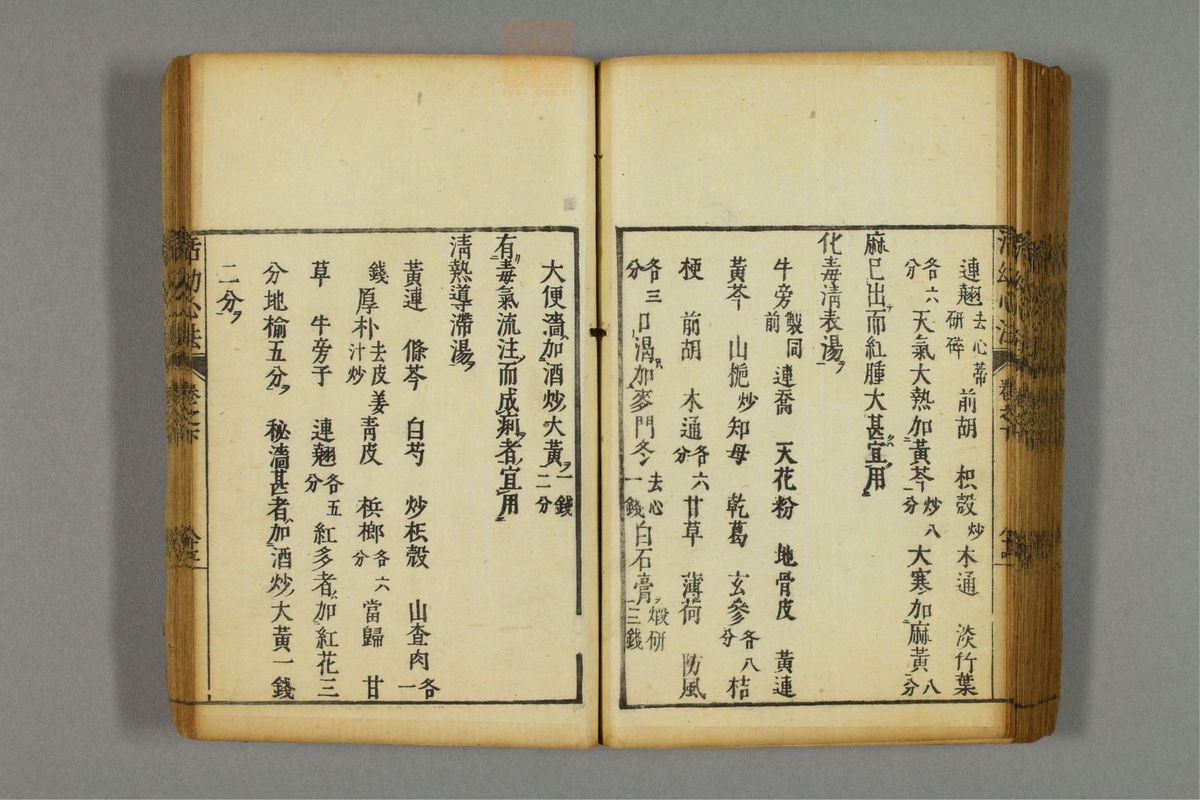 連翹去心蒂研碎 前胡 枳殼炒 木通 淡竹葉
各六分 天氣大熱加黃芩炒八分 大寒加麻黃八分
麻已出而紅腫大甚宜用
化毒清表湯
牛旁製同前 連喬 天花粉 地骨皮 黃連
黃芩 山梔炒 知母 乾葛 玄參各八分 桔
梗 前胡 木通各六分 甘草 薄荷 防風
各三分 口渴加麥門冬去心一錢 白石膏煅研三錢
大便濇加酒炒大黃一錢二分
有毒氣流注而成痢者宜用
清熱導滯湯
黃連 條芩 白芍 炒枳殼 山查肉各一
錢 厚朴去皮姜汁炒 青皮 梹榔各六分 當歸 甘
草 牛旁子 連翹各五分 紅多者加紅花三
分地榆五分 秘濇甚者加酒炒大黃一錢
二分
活幼心法 卷之下